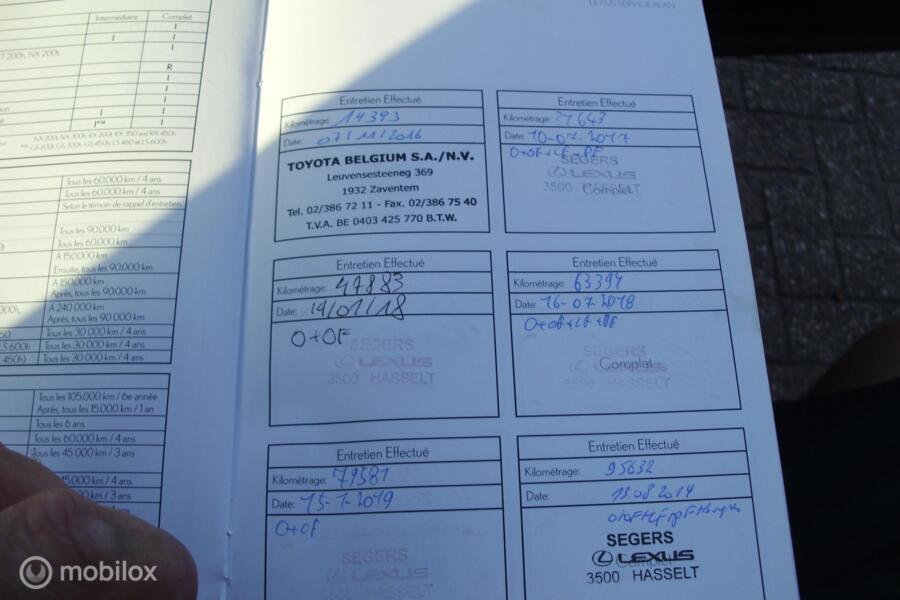 LEXUS SERVICE PLAN
Intermédiaire Complet
I
I I
NX 200t I
R
I
I
I I
I*** I
NX 200t, NX 300h, RX 200t, RX 350 and RX 450h
GS 200t, GS 300h, GS 450h, LS 460 et LS 600h
Tous les 60.000 km / 4 ans
Tous les 60.000 km / 4 ans
Selon le témoin de rappel d'entretien
Tous les 90.000 km
Tous les 60.000 km
A 150.000 km
Ensuite, tous les 90.000 km
A 150.000 km
Après, tous les 90.000 km
300h, A 240 000 km
Après, tous les 90.000 km
Tous les 30 000 km / 4 ans
LS 600h Tous les 30 000 km / 4 ans
450h) Tous les 30 000 km / 4 ans
Tous les 105.000 km / 6e année
Après, tous les 15.000 km / 1 an
Tous les 6 ans
Tous les 60.000 km / 4 ans
Tous les 45 000 km / 3 ans
km / 4 ans
km / 3 ans
Entretien Effectué
Kilométrage: 14393
Date: 07/11/2016
TOYOTA BELGIUM S.A./N.V.
Leuvensesteeneg 369
1932 Zaventem
Tel. 02/386 72 11 - Fax. 02/386 75 40
T.V.A. BE 0403 425 770 B.T.W.
Entretien Effectué
Kilométrage: 27643
Date: 10-07-2017
O+OF+LF+PF
SEGERS
LEXUS
3500 Complet
Entretien Effectué
Kilométrage: 47883
Date: 19/01/18
O+OF
SEGERS
LEXUS
3500 HASSELT
Entretien Effectué
Kilométrage: 63394
Date: 16-07-2018
O+OF+LF+PF
SEGERS
Complet
3500 HASSELT
Entretien Effectué
Kilométrage: 79581
Date: 15-1-2019
O+OF
SEGERS
LEXUS
3500 HASSELT
Entretien Effectué
Kilométrage: 95632
Date: 13 08 2019
SEGERS
LEXUS
3500 HASSELT
mobilox